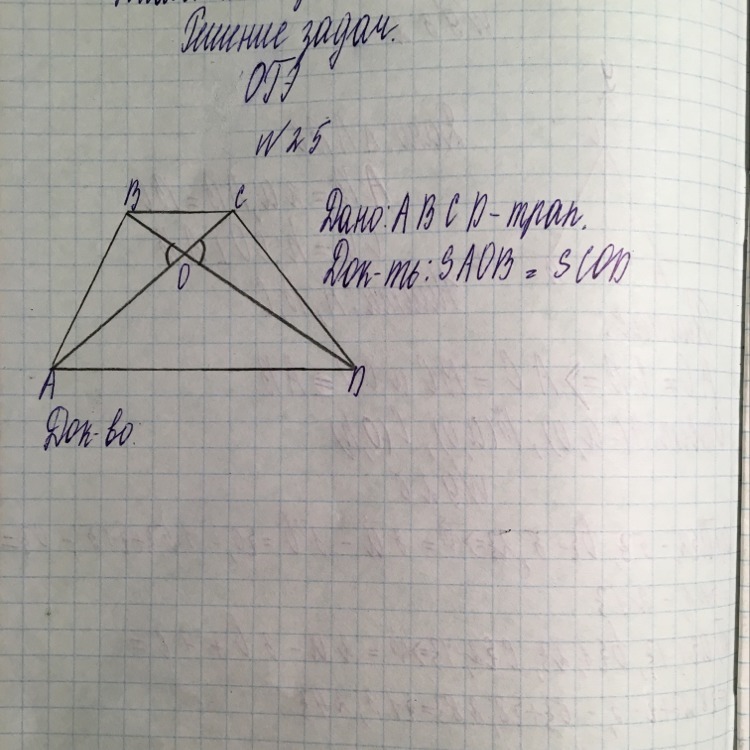 Решение задач.
ОГЭ
№25
B C
Дано: ABCD - трап.
Док-ть: SAOB = SCOD
O
A D
Док-во: